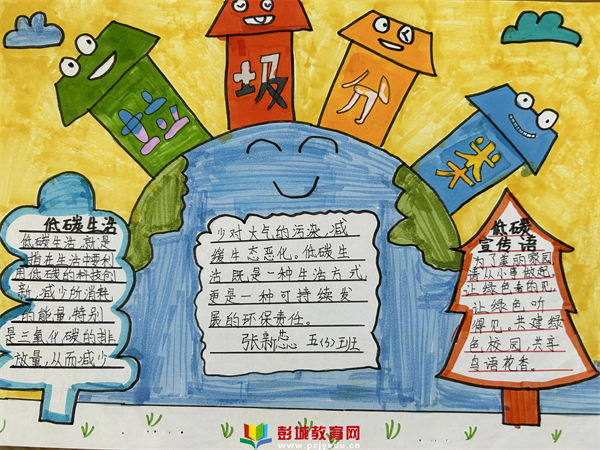 垃圾分类
低碳生活
低碳生活,就是
指在生活中要利
用低碳的科技创
新,减少所消耗
的能量,特别
是二氧化碳的排
放量,从而减少
少对大气的污染,减
缓生态恶化。低碳生
活既是一种生活方式,
更是一种可持续发
展的环保责任。
张新蕊 五(3)班
低碳
宣传语
为了美丽家园
请从小事做起,
让绿色看的见,
让绿色,听
得见。共建绿
色校园,共享
鸟语花香。
彭城教育网
www.pcjyedu.cn